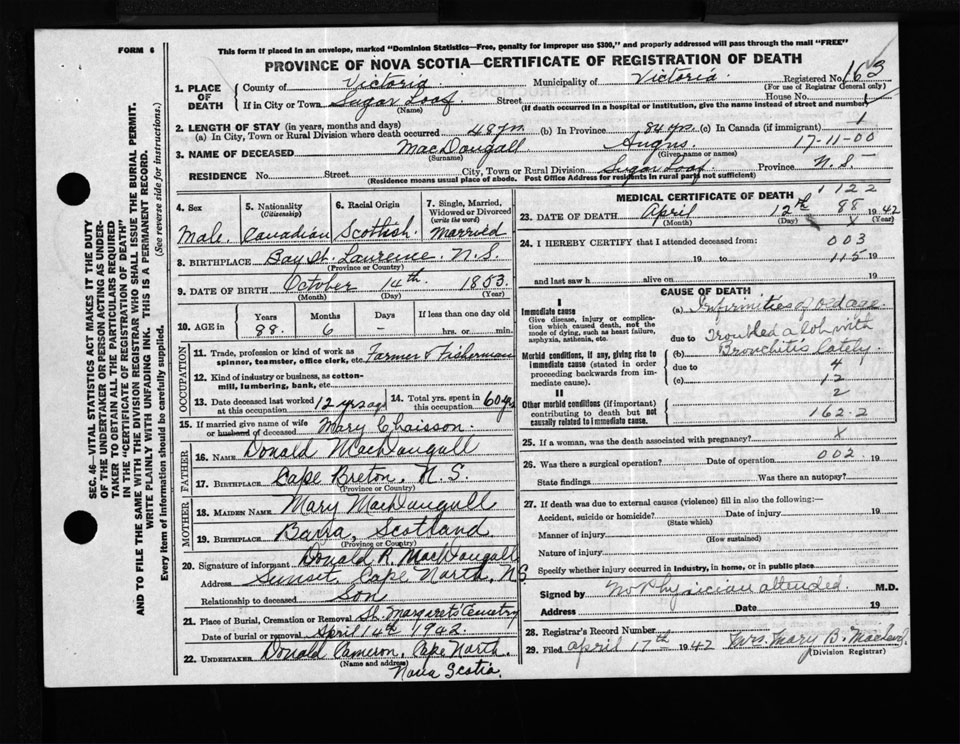 FORM 6
This form if placed in an envelope, marked "Dominion Statistics—Free, penalty for improper use $300," and properly addressed will pass through the mail "FREE"
PROVINCE OF NOVA SCOTIA—CERTIFICATE OF REGISTRATION OF DEATH
1. PLACE OF DEATH
County of Victoria Municipality of Victoria. Registered No. 163
(For use of Registrar General only)
If in City or Town Sugar Loaf Street House No.
(Name) (If death occurred in a hospital or institution, give the name instead of street and number)
2. LENGTH OF STAY (in years, months and days)
(a) In City, Town or Rural Division where death occurred 48 yrs (b) In Province 84 yrs. (c) In Canada (if immigrant) 1
17-11-00
3. NAME OF DECEASED MacDougall Angus.
(Surname) (Given name or names)
RESIDENCE No. Street City, Town or Rural Division Sugar Loaf. Province N.S.
(Residence means usual place of abode. Post Office Address for residents in rural parts not sufficient)
4. Sex 5. Nationality (Citizenship) 6. Racial Origin 7. Single, Married, Widowed or Divorced (write the word)
Male. Canadian Scottish. Married
8. BIRTHPLACE Bay St. Laurence. N.S.
(Province or Country)
9. DATE OF BIRTH October 14th. 1853.
(Month) (Day) (Year)
10. AGE in Years Months Days If less than one day old
88. 6 – hrs. or min.
OCCUPATION
11. Trade, profession or kind of work as spinner, teamster, office clerk, etc. Farmer & Fisherman
12. Kind of industry or business, as cotton-mill, lumbering, bank, etc.
13. Date deceased last worked at this occupation 12 yrs ago 14. Total yrs. spent in this occupation 60 yrs
15. If married give name of wife or husband of deceased Mary Chaisson.
FATHER
16. NAME Donald MacDougall
17. BIRTHPLACE Cape Breton, N.S.
(Province or Country)
MOTHER
18. MAIDEN NAME Mary MacDougall
19. BIRTHPLACE Barra, Scotland
(Province or Country)
20. Signature of informant Donald R. MacDougall
Address Sunset, Cape North, N.S.
Relationship to deceased Son
21. Place of Burial, Cremation or Removal St. Margarets Cemetry
Date of burial or removal April 14th 1942.
22. UNDERTAKER Donald Cameron, Cape North.
(Name and address)
Nova Scotia.
MEDICAL CERTIFICATE OF DEATH
1 1 2 2
23. DATE OF DEATH April 12th 88 1942
(Month) (Day) x (Year)
24. I HEREBY CERTIFY that I attended deceased from: 003
19 to 115 19
and last saw h alive on 19
CAUSE OF DEATH
I
Immediate cause
Give disease, injury or complication which caused death, not the mode of dying, such as heart failure, asphyxia, asthenia, etc.
(a) Infirmities of old age.
due to Troubled a lot with
Morbid conditions, if any, giving rise to immediate cause (stated in order proceeding backwards from immediate cause).
(b) Bronchitis lately.
due to 4
(c) 12
2
II
Other morbid conditions (if important) contributing to death but not causally related to immediate cause.
162-2
25. If a woman, was the death associated with pregnancy? x
26. Was there a surgical operation? Date of operation 002 19
State findings Was there an autopsy?
27. If death was due to external causes (violence) fill in also the following:—
Accident, suicide or homicide? Date of injury 19
(State which)
Manner of injury
(How sustained)
Nature of injury
Specify whether injury occurred in industry, in home, or in public place
Signed by No Physician attended. M.D.
Address Date 19
28. Registrar's Record Number
29. Filed April 17th 1942 Mrs. Mary B.
(Division Registrar)
SEC. 46—VITAL STATISTICS ACT MAKES IT THE DUTY
OF THE UNDERTAKER OR PERSON ACTING AS UNDER-
TAKER TO OBTAIN ALL THE PARTICULARS REQUIRED
IN THE "CERTIFICATE OF REGISTRATION OF DEATH"
AND TO FILE THE SAME WITH THE DIVISION REGISTRAR WHO SHALL ISSUE THE BURIAL PERMIT.
WRITE PLAINLY WITH UNFADING INK. THIS IS A PERMANENT RECORD.
Every item of information should be carefully supplied. (See reverse side for instructions.)